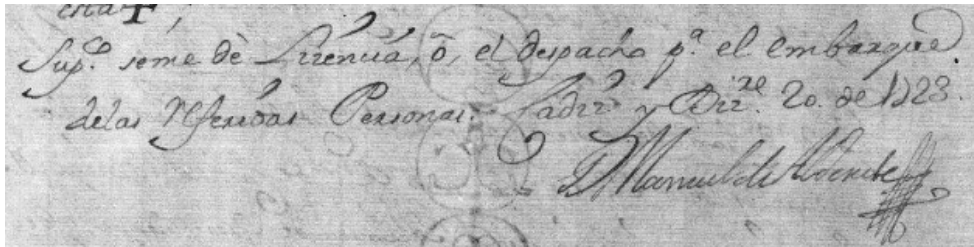 Sup.co seme dè Lizencia, ô, el despacho p.a el embarque
delas Referidas Personas. Cadiz y Diz.re 20. de 1728.
D. Manuel de